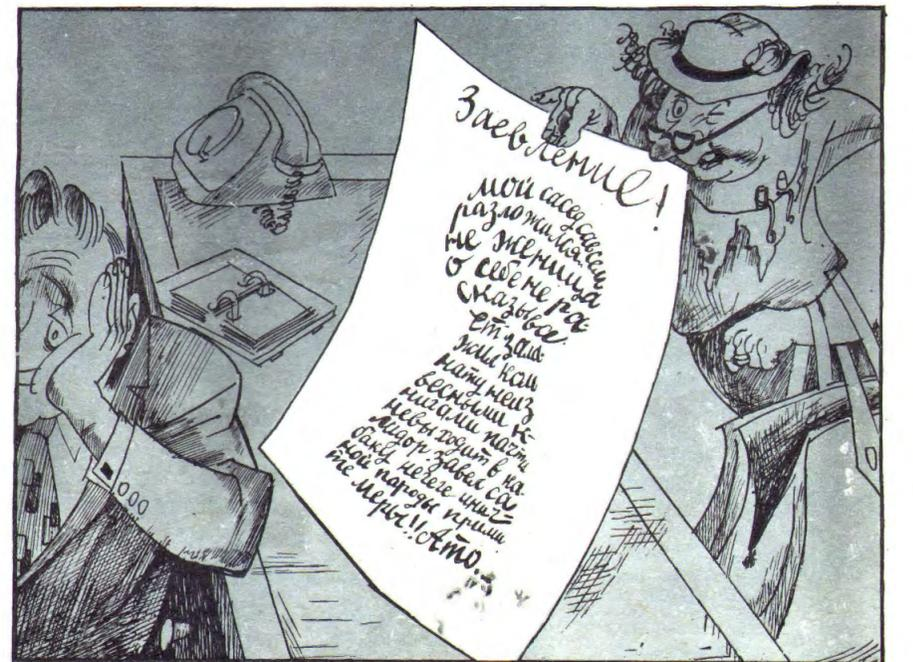 Заевление!
мой сасед савсем
разложился
не женица
о себе не ра-
сказывае
ет зала-
жил ком
нату неиз
весными к-
нигами почти
невыходит в ка-
лидор завел сан
баку нечеге иной
ной пароды прими
те меры!! Ато.